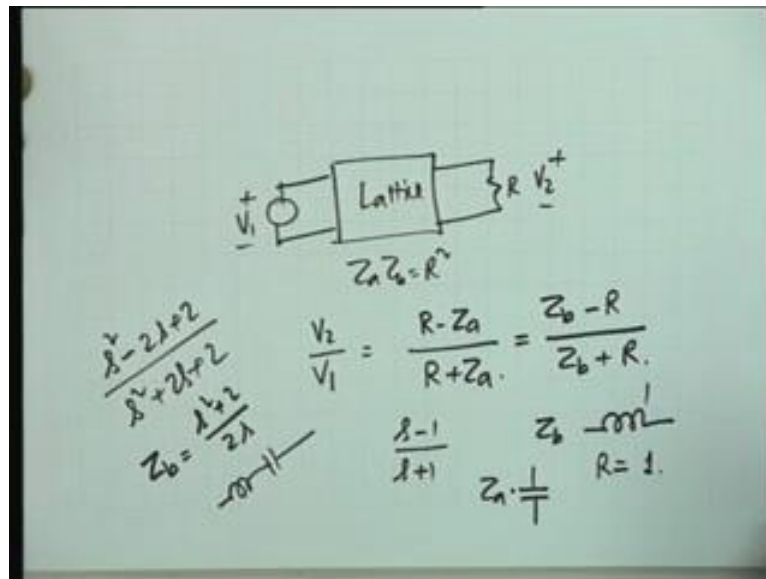 + V₁ −
Lattice
R V₂ + −
Zₐ Z_b = R²
s² − 2s + 2 / s² + 2s + 2
Z_b = s² + 2 / 2s
V₂ / V₁ = R − Zₐ / R + Zₐ . = Z_b − R / Z_b + R .
s − 1 / s + 1
Z_b 1
R = 1.
Zₐ .